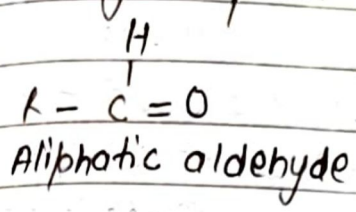 H
|
R - C = O
Aliphatic aldehyde